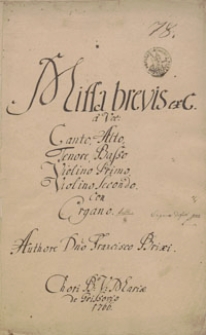 78.
Missa brevis ex C.
à Voc:
Canto, Alto,
Tenore, Basso
Violino Primo,
Violino Secondo.
Con
Organo.
Authore Dno Francisco Brixi.
Chori B V Mariæ
de
1760.